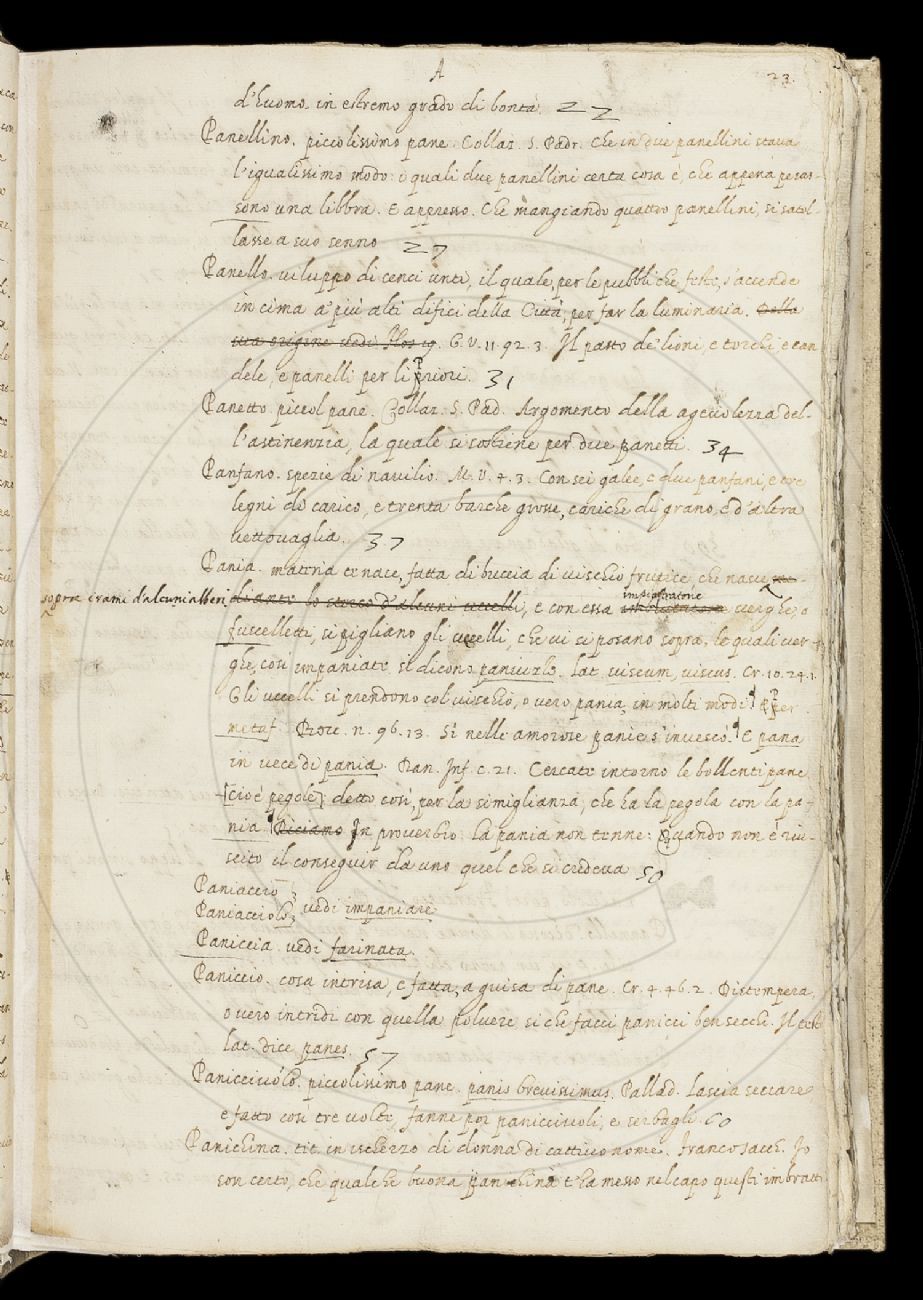 A
23.
d'huomo in estremo grado di bontà. 22
Panellino. piccolissimo pane. Collaz. S. Padr. Che in due panellini stava
l'igualissimo modo: i quali due panellini certa cosa è, che appena pesas-
sono una libbra. E appresso. Che mangiando quattro panellini, si satol-
lasse a suo senno 27
Panello. viluppo di cenci unti, il quale, per le pubbliche feste, s'accende
in cima a' più alti difici della Città, per far la luminaria. Della
sua origine vedi G. V. 11. 92. 3. Il pasto de' lioni, e torchi, e can
dele, e panelli per li priori. 31
Panetto. piccol pane. Collaz. S. Pad. Argomento della agevolezza del-
l'astinenzia, la quale si sostiene per due panetti. 34
Panfano. spezie di navilio. M. V. 4. 3. Con sei galee, e due panfani, e tre
legni di carico, e trenta barche grosse, cariche di grano, e d'altra
vettovaglia. 37
Pania. materia tenace, fatta di buccia di vischio frutice, che nasce
sopra i rami d'alcuni alberi lo sterco d'alcuni uccelli, e con essa impiastratone verghe, o
fuscelletti, si pigliano gli uccelli, che vi si posano sopra, le quali ver-
ghe, così impaniate si dicono paniuzle. lat. viscum, viscus. Cr. 10. 24. 1.
Gli uccelli si prendono col vischio, o vero pania, in molti modi. E per
metaf. Petr. n. 96. 13. Sì nelle amorose panie s'invescò. E pana
in vece di pania. Dan. Inf. c. 21. Cercate intorno le bollenti pane
[cioè pegole] detto così, per la simiglianza, che ha la pegola con la pa-
nia. Diciamo In proverbio. La pania non tenne: Quando non è riu-
scito il conseguir da uno quel che si credeva 50
Paniaccio
Paniacciolo, vedi impaniare
Paniccia. vedi farinata.
Paniccio. cosa intrisa, e fatta, a guisa di pane. Cr. 4. 46. 2. Distempera,
o vero intridi con quella polvere si che facci panicci ben secchi. Il testo
lat. dice panes. 57
Panicciuolo. piccolissimo pane. panis brevissimus. Pallad. Lascia seccare
e fatto così tre volte, fanne poi panicciuoli, e serbagli. 60
Panichina. tit. in ischerzo di donna di cattivo nome. Franco Sacch. Io
son certo, che qualche buona panichina t'ha messo nel capo questi imbratti